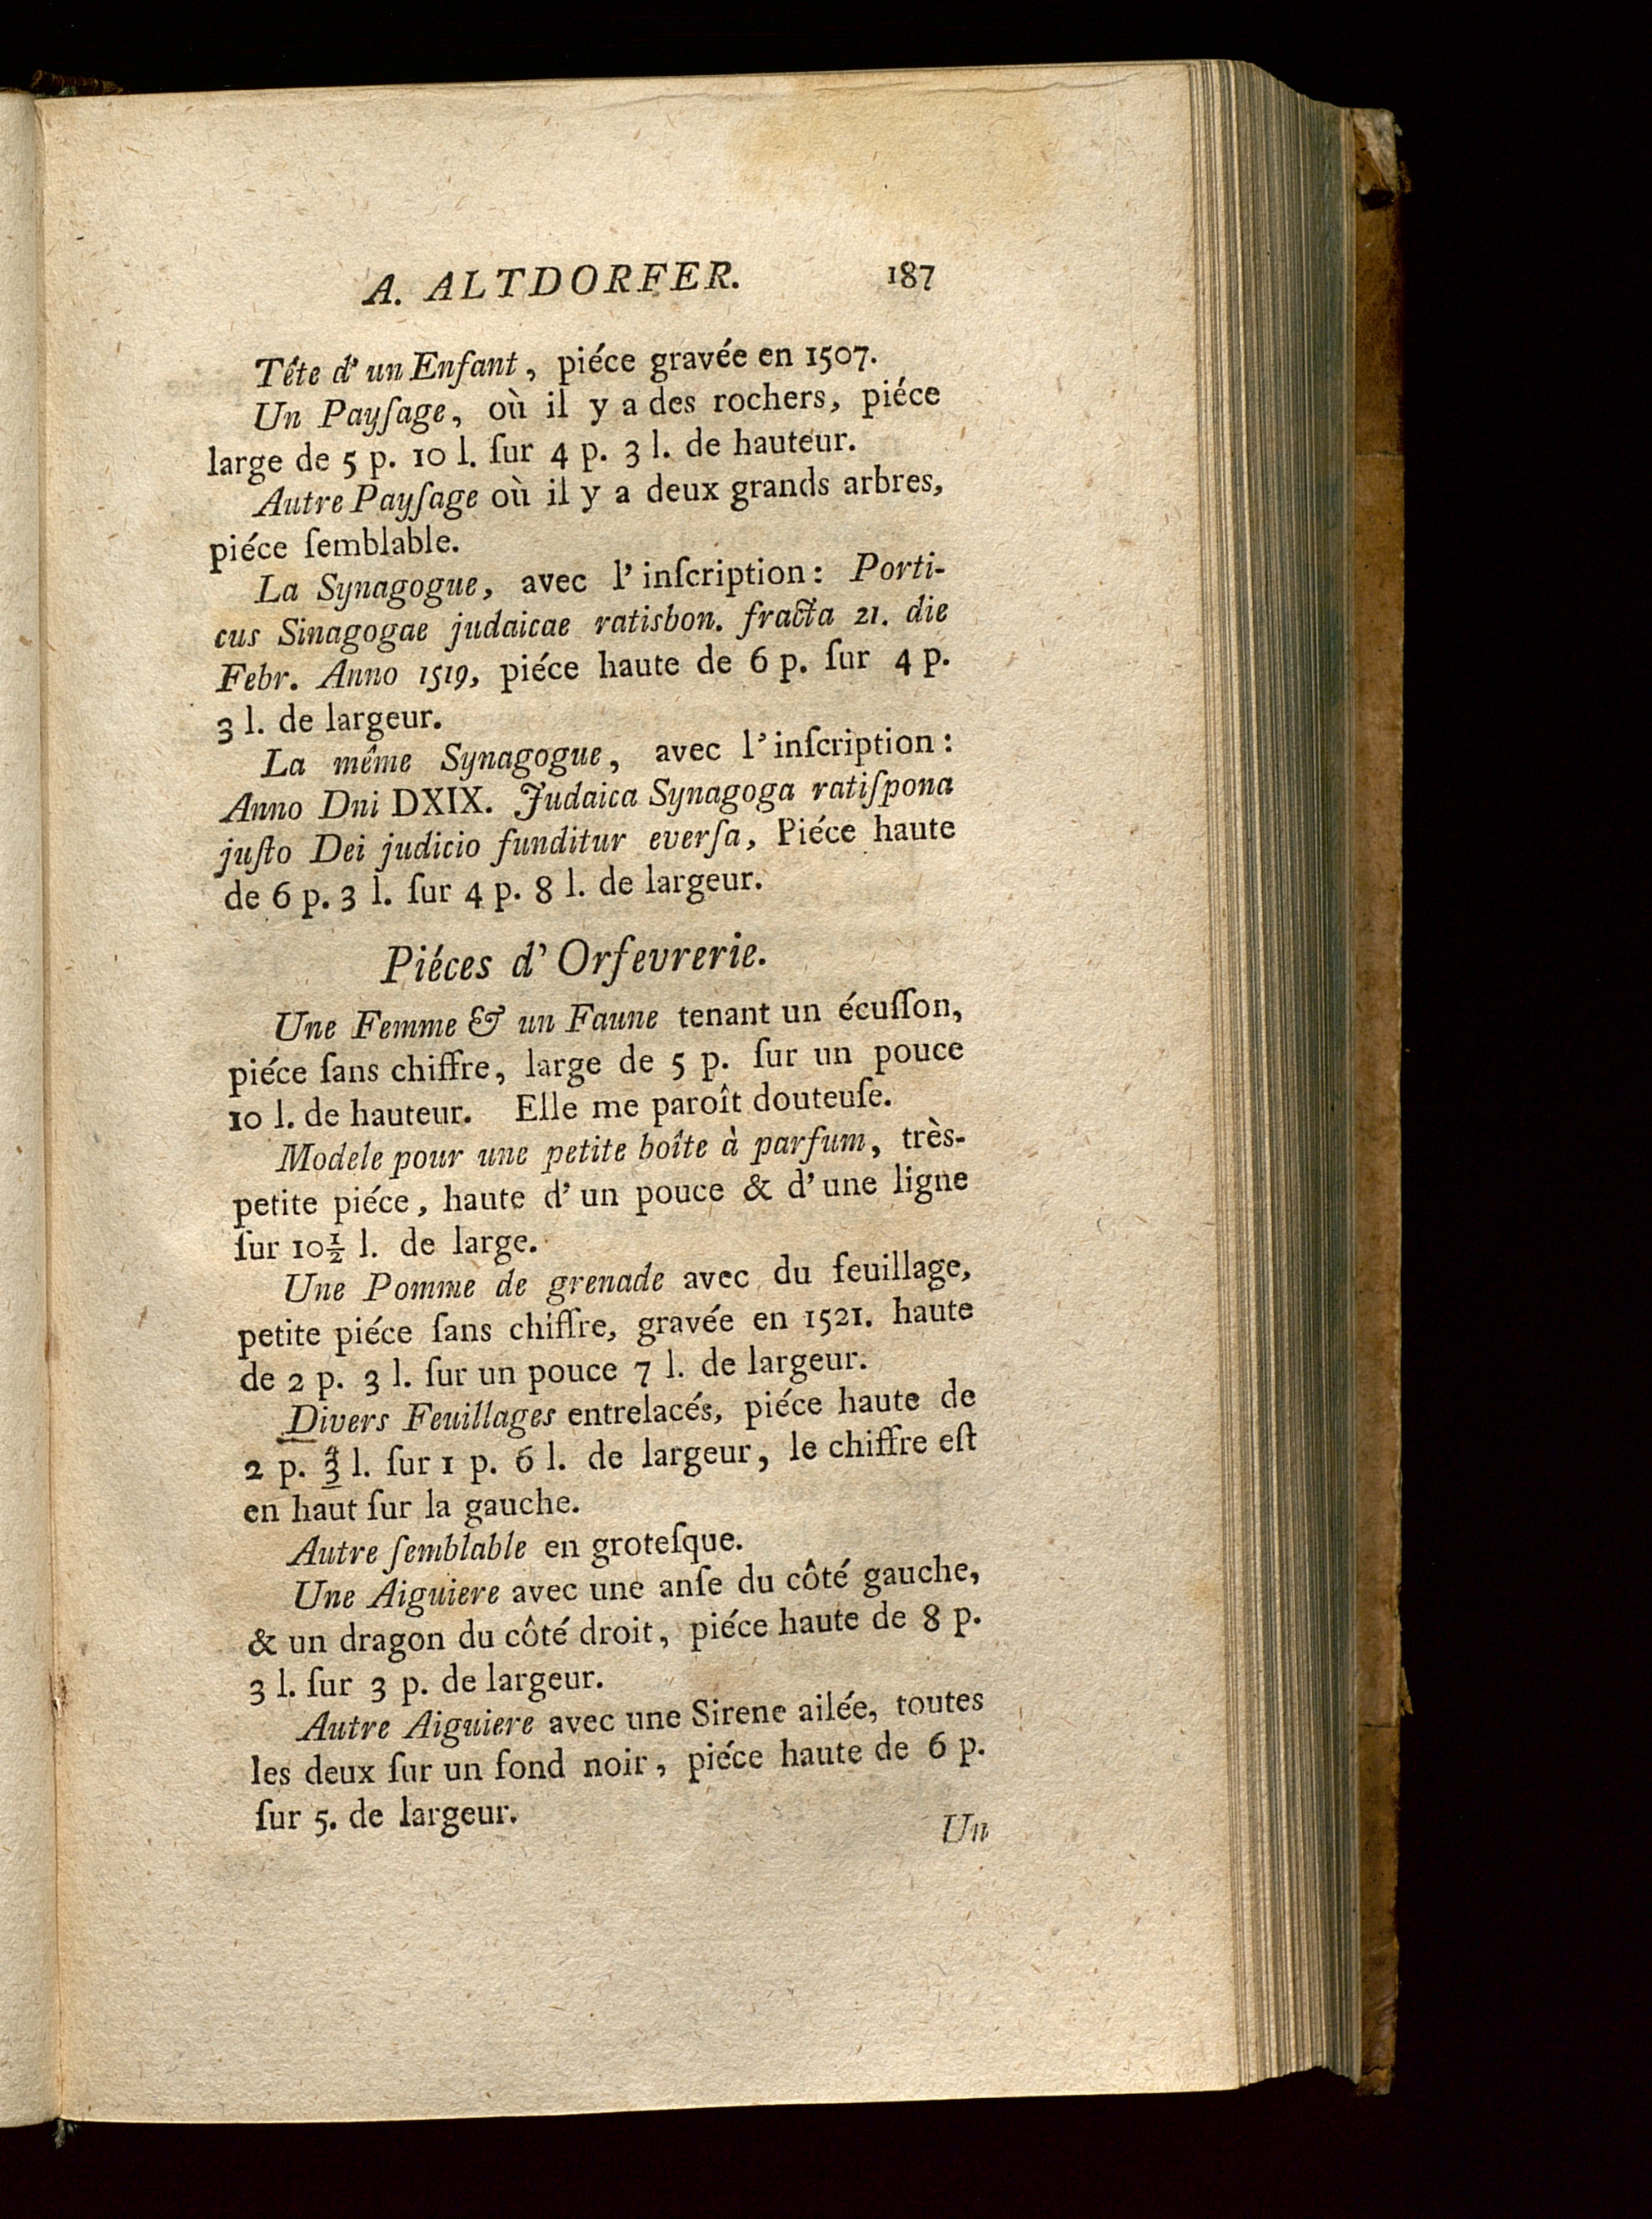 A. ALTDORFER. 187
Téte d'un Enfant, piéce gravée en 1507.
Un Payſage, où il y a des rochers, piéce
large de 5 p. 10 l. ſur 4 p. 3 l. de hauteur.
Autre Payſage où il y a deux grands arbres,
piéce ſemblable.
La Synagogue, avec l'inſcription: Porti-
cus Sinagogae judaicae ratisbon. fracta 21. die
Febr. Anno 1519, piéce haute de 6 p. ſur 4 p.
3 l. de largeur.
La même Synagogue, avec l'inſcription:
Anno Dni DXIX. Judaica Synagoga ratiſpona
juſto Dei judicio funditur everſa, Piéce haute
de 6 p. 3 l. ſur 4 p. 8 l. de largeur.
Piéces d'Orfevrerie.
Une Femme & un Faune tenant un écuſſon,
piéce ſans chiffre, large de 5 p. ſur un pouce
10 l. de hauteur. Elle me paroît douteuſe.
Modele pour une petite boîte à parfum, très-
petite piéce, haute d'un pouce & d'une ligne
ſur 10½ l. de large.
Une Pomme de grenade avec du feuillage,
petite piéce ſans chiffre, gravée en 1521. haute
de 2 p. 3 l. ſur un pouce 7 l. de largeur.
Divers Feuillages entrelacés, piéce haute de
2 p. l. ſur 1 p. 6 l. de largeur, le chiffre eſt
en haut ſur la gauche.
Autre ſemblable en groteſque.
Une Aiguiere avec une anſe du côté gauche,
& un dragon du côté droit, piéce haute de 8 p.
3 l. ſur 3 p. de largeur.
Autre Aiguiere avec une Sirene ailée, toutes
les deux ſur un fond noir, piéce haute de 6 p.
ſur 5. de largeur.
Un